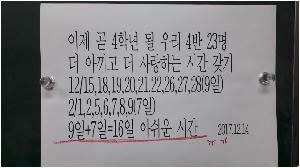 이제 곧 4학년 될 우리 4반 23명
더 아끼고 더 사랑하는 시간 갖기
12/15,18,19,20,21,22,26,27,28(9일)
2/1,2,5,6,7,8,9(7일)
9일+7일=16일 아쉬운 시간 2017.12.14
ㅠㅠ